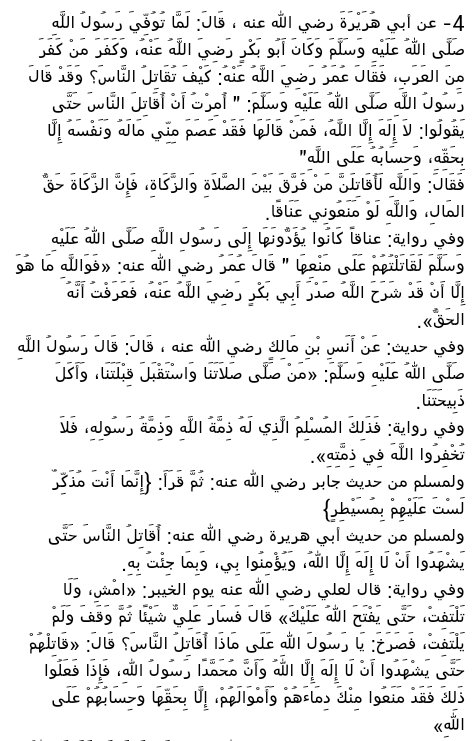 4- عن أبي هُرَيْرَةَ رضي الله عنه ، قَالَ: لَمَّا تُوُفِّيَ رَسُولُ اللَّهِ
صَلَّى اللهُ عَلَيْهِ وَسَلَّمَ وَكَانَ أَبُو بَكْرٍ رَضِيَ اللَّهُ عَنْهُ، وَكَفَرَ مَنْ كَفَرَ
مِنَ العَرَبِ، فَقَالَ عُمَرُ رَضِيَ اللَّهُ عَنْهُ: كَيْفَ تُقَاتِلُ النَّاسَ؟ وَقَدْ قَالَ
رَسُولُ اللَّهِ صَلَّى اللهُ عَلَيْهِ وَسَلَّمَ: " أُمِرْتُ أَنْ أُقَاتِلَ النَّاسَ حَتَّى
يَقُولُوا: لاَ إِلَهَ إِلَّا اللَّهُ، فَمَنْ قَالَهَا فَقَدْ عَصَمَ مِنِّي مَالَهُ وَنَفْسَهُ إِلَّا
بِحَقِّهِ، وَحِسَابُهُ عَلَى اللَّهِ"
فَقَالَ: وَاللَّهِ لَأُقَاتِلَنَّ مَنْ فَرَّقَ بَيْنَ الصَّلاَةِ وَالزَّكَاةِ، فَإِنَّ الزَّكَاةَ حَقُّ
المَالِ، وَاللَّهِ لَوْ مَنَعُونِي عَنَاقًا.
وفي رواية: عناقاً كَانُوا يُؤَدُّونَهَا إِلَى رَسُولِ اللَّهِ صَلَّى اللهُ عَلَيْهِ
وَسَلَّمَ لَقَاتَلْتُهُمْ عَلَى مَنْعِهَا " قَالَ عُمَرُ رضي الله عنه: «فَوَاللَّهِ مَا هُوَ
إِلَّا أَنْ قَدْ شَرَحَ اللَّهُ صَدْرَ أَبِي بَكْرٍ رَضِيَ اللَّهُ عَنْهُ، فَعَرَفْتُ أَنَّهُ
الحَقُّ».
وفي حديث: عَنْ أَنَسِ بْنِ مَالِكٍ رضي الله عنه ، قَالَ: قَالَ رَسُولُ اللَّهِ
صَلَّى اللهُ عَلَيْهِ وَسَلَّمَ: «مَنْ صَلَّى صَلاَتَنَا وَاسْتَقْبَلَ قِبْلَتَنَا، وَأَكَلَ
ذَبِيحَتَنَا.
وفي رواية: فَذَلِكَ المُسْلِمُ الَّذِي لَهُ ذِمَّةُ اللَّهِ وَذِمَّةُ رَسُولِهِ، فَلاَ
تُخْفِرُوا اللَّهَ فِي ذِمَّتِهِ».
ولمسلم من حديث جابر رضي الله عنه: ثُمَّ قَرَأَ: {إِنَّمَا أَنْتَ مُذَكِّرٌ
لَسْتَ عَلَيْهِمْ بِمُسَيْطِرٍ}
ولمسلم من حديث أبي هريرة رضي الله عنه: أُقَاتِلُ النَّاسَ حَتَّى
يَشْهَدُوا أَنْ لَا إِلَهَ إِلَّا اللهُ، وَيُؤْمِنُوا بِي، وَبِمَا جِئْتُ بِهِ.
وفي رواية: قال لعلي رضي الله عنه يوم الخيبر: «امْشِ، وَلَا
تَلْتَفِتْ، حَتَّى يَفْتَحَ اللهُ عَلَيْكَ» قَالَ فَسَارَ عَلِيٌّ شَيْئًا ثُمَّ وَقَفَ وَلَمْ
يَلْتَفِتْ، فَصَرَخَ: يَا رَسُولَ اللهِ عَلَى مَاذَا أُقَاتِلُ النَّاسَ؟ قَالَ: «قَاتِلْهُمْ
حَتَّى يَشْهَدُوا أَنْ لَا إِلَهَ إِلَّا اللهُ وَأَنَّ مُحَمَّدًا رَسُولُ اللهِ، فَإِذَا فَعَلُوا
ذَلِكَ فَقَدْ مَنَعُوا مِنْكَ دِمَاءَهُمْ وَأَمْوَالَهُمْ، إِلَّا بِحَقِّهَا وَحِسَابُهُمْ عَلَى
اللهِ»